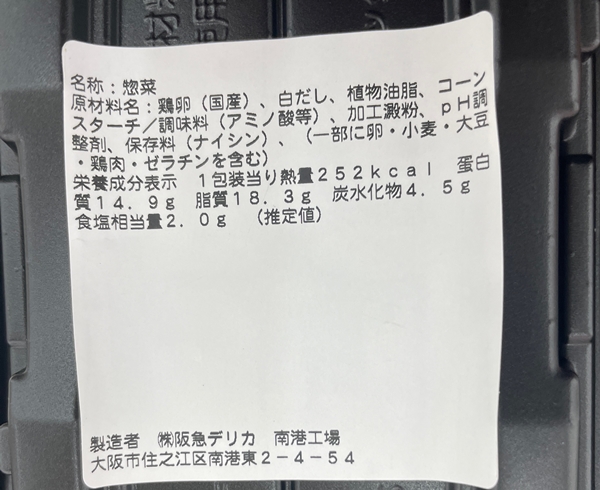 名称：惣菜
原材料名：鶏卵（国産）、白だし、植物油脂、コーン
スターチ／調味料（アミノ酸等）、加工澱粉、ｐＨ調
整剤、保存料（ナイシン）、（一部に卵・小麦・大豆
・鶏肉・ゼラチンを含む）
栄養成分表示　１包装当り熱量２５２ｋｃａｌ　蛋白
質１４．９ｇ　脂質１８．３ｇ　炭水化物４．５ｇ
食塩相当量２．０ｇ　（推定値）
製造者　㈱阪急デリカ　南港工場
大阪市住之江区南港東２－４－５４